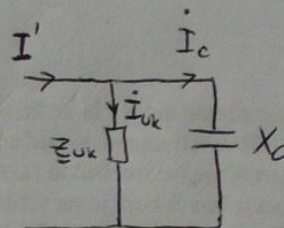 I'
İ_c
İ_uk
Z_uk
X_c